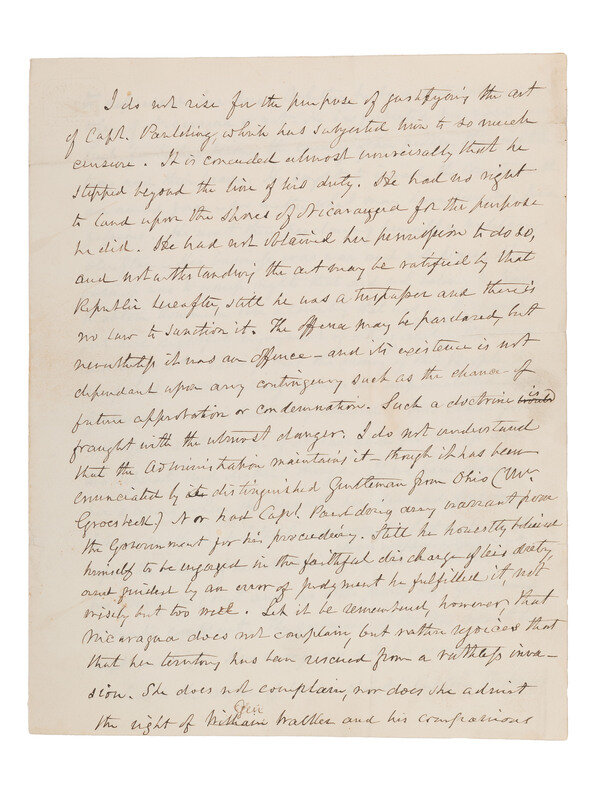 I do not rise for the purpose of justifying the act
of Capt. Paulding, which has subjected him to so much
censure. It is conceded almost universally that he
stepped beyond the line of his duty. He had no right
to land upon the shores of Nicaragua for the purpose
he did. He had not obtained her permission to do so,
and notwithstanding the act may be ratified by that
Republic hereafter, still he was a trespasser and there is
no law to sanction it. The offence may be pardoned, but
nevertheless it was an offence – and its existence is not
dependant upon any contingency such as the chance of
future approbation or condemnation. Such a doctrine is
fraught with the utmost danger. I do not understand
that the Administration maintains it – though it has been
enunciated by its distinguished Gentleman from Ohio (Mr.
Groesbeck) Nor had Capt. Paulding any warrant from
the Government for his proceeding. Still he honestly believed
himself to be engaged in the faithful discharge of his duty,
and guided by an error of judgment he fulfilled it, not
wisely, but too well. Let it be remembered, however, that
Nicaragua does not complain, but rather rejoices that
that her territory has been rescued from a ruthless inva-
sion. She does not complain, nor does she admit
the right of Gen William Walker and his companions